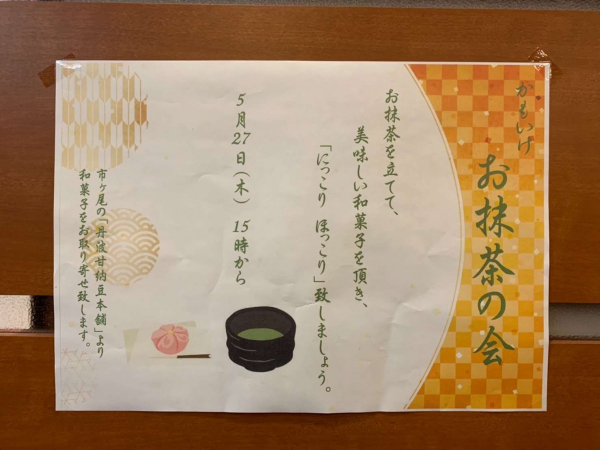 かもいけ
お抹茶の会
お抹茶を立てて、
美味しい和菓子を頂き、
「にっこり ほっこり」致しましょう。
5月27日(木) 15時から
市ヶ尾の「丹波甘納豆本舗」より
和菓子をお取り寄せ致します。